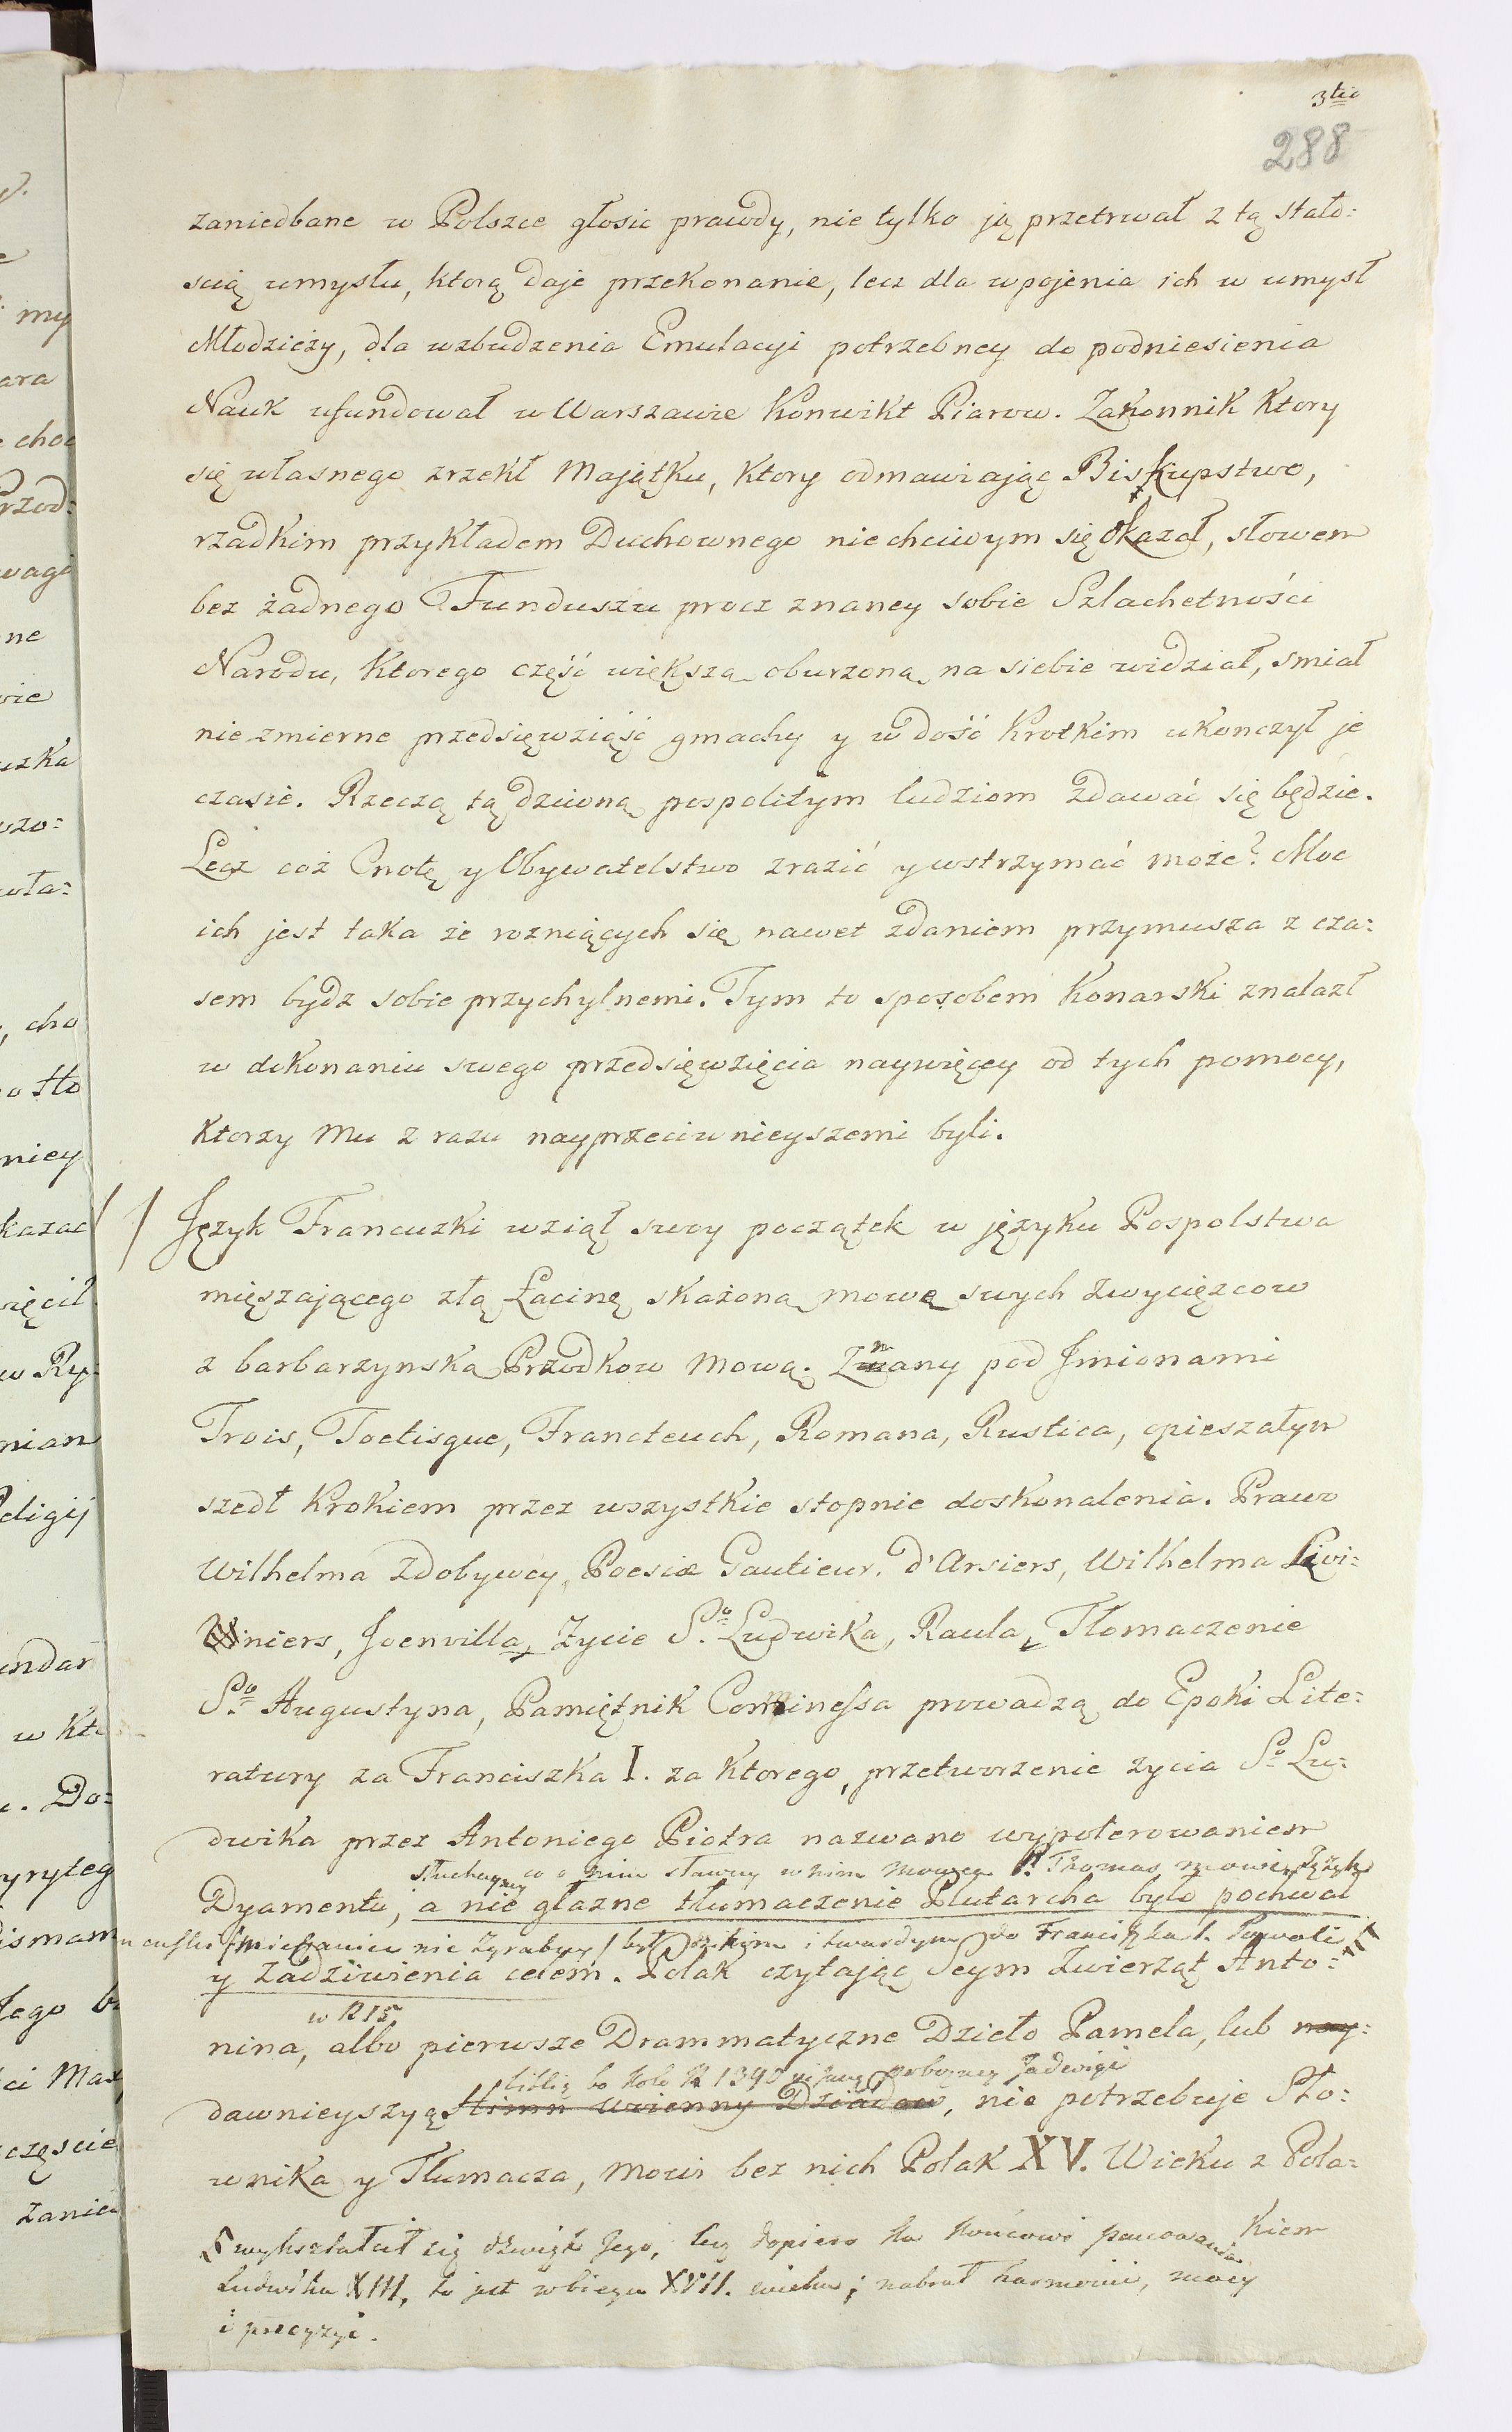 3tio
288
zaniedbane w Polszce głosic prawdy, nie tylko ją przetrwał z tą stało:
scią umysłu, ktorą daje przekonanie, lecz dla wpojenia ich w umysł
Młodzieży, dla wzbudzenia Emulacyi potrzebney do podniesienia
Nauk ufundował w Warszawie Konwikt Piarow. Zakonnik Ktory
się własnego zrzekł Majątku, Ktory odmawiając Biskupstwo,
rzadkim przykładem Duchownego niechciwym się okazał, słowem
bez żadnego Funduszu procz znaney sobie Szlachetności
Narodu, Ktorego część większą oburzoną na siebie widział, smiał
niezmierne przedsięwziąść gmachy y w dość Krotkim ukonczył je
czasie. Rzeczą tą dziwną pospolitym ludziom zdawać się będzie.
Lecz coż Cnotę y Obywatelstwo zrazić y wstrzymać może? Moc
ich jest taka że rozniących się nawet zdaniem przymusza z cza:
sem bydz sobie przychylnemi. Tym to sposobem Konarski znalazł
w dokonaniu swego przedsięwzięcia naywięcey od tych pomocy,
Ktorzy Mu z razu nayprzeciwnieyszemi byli.
Język Francuzki wziął swoy początek w języku Pospolstwa
mięszającego złą Łacinę skażoną mową swych zwycięzcow
z barbarzynską Przodkow Mową. Znany pod Jmionami
Trois, Toetisque, Francteuch, Romana, Rustica, opieszałym
szedł Krokiem przez wszystkie stopnie doskonalenia. Prawo
Wilhelma Zdobywcy, Poesiæ Gautieur. d'Arsiers, Wilhelma Livi:
niers, Joenvilla Zycie So. Ludwika, Raula Tłomaczenie
So. Augustyna, Pamiętnik Cominessa prowadzą do Epoki Lite:
ratury za Franciszka I. za Ktorego, przetworzenie zycia So Lu:
dwika przez Antoniego Piotra nazwano wypolerowaniem
słuchaymy co o nim sławny w nim Mowca P. Thomas mowi. Język
Dyamentu, a nie głazne tłumaczenie Plutarcha było pochwał
nie zgrabny był dzikim i twardym do Franciszka I. Powoli
y zadziwienia celem. Polak czytając Seym Zwierząt Anto:
w R 15
nina, albo pierwsze Drammatyczne Dzieło Pamela, lub nay:
biblią to koło R 1390 Jadwigi
dawnieyszyą Hymn woienny Dziadow, nie potrzebuje Sło:
wnika y Tłumacza, Mowi bez nich Polak XV. Wieku z Pola:
kiem
wykształcił się dzwięk Jego, lecz dopiero ku końcowi panowania
Ludwika XIII, to jest w biegu XVII. wieku; nabrał harmonii, mocy
i precyzyi.